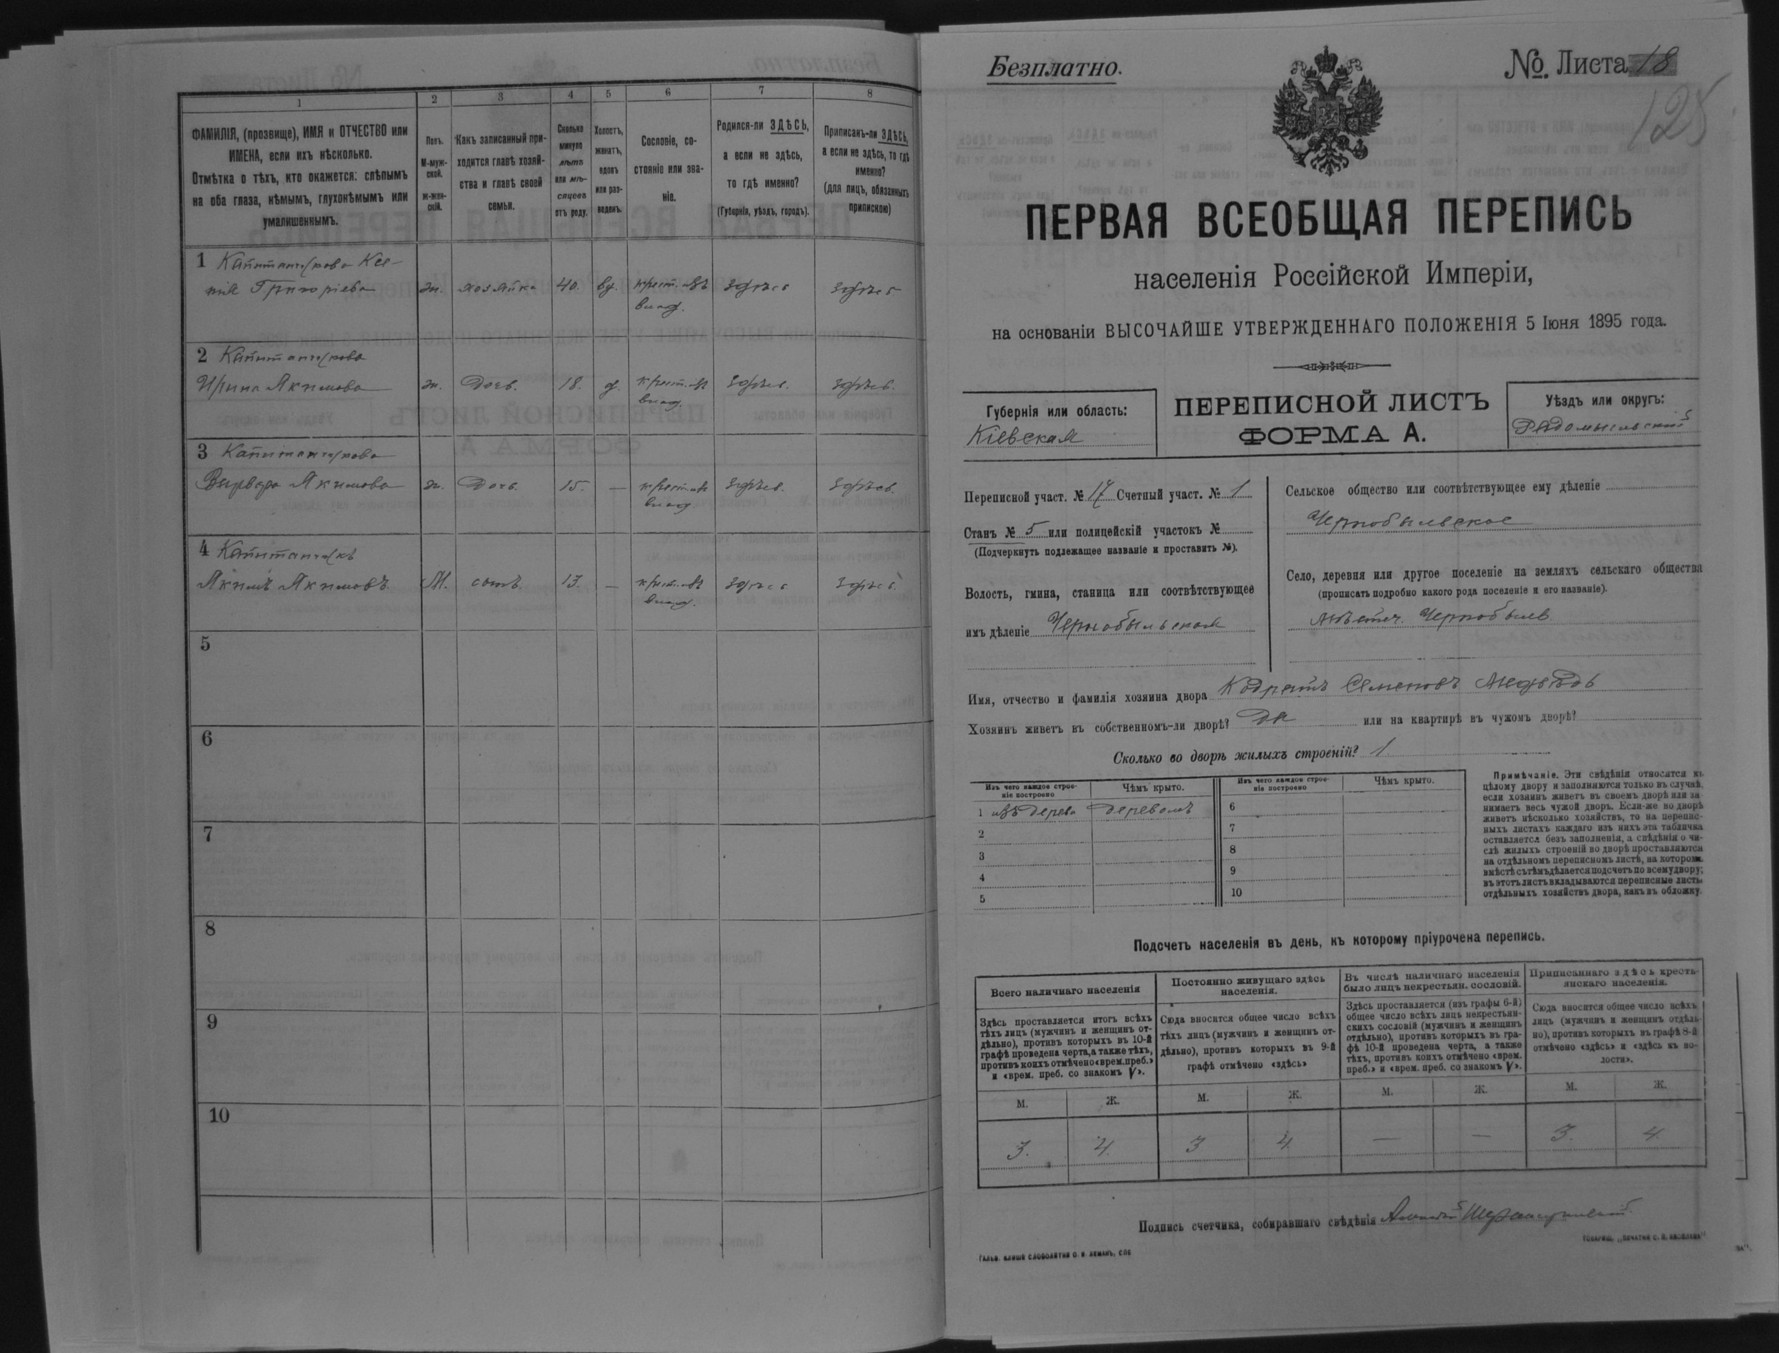 1 2 3 4 5 6 7 8
ФАМИЛІЯ, (прозвище), ИМЯ и ОТЧЕСТВО или
ИМЕНА, если ихъ нѣсколько.
Отмѣтка о тѣхъ, кто окажется: слѣпымъ
на оба глаза, нѣмымъ, глухонѣмымъ или
умалишеннымъ.
Полъ.
М-муж-
ской.
Ж-жен-
скій.
Какъ записанный при-
ходится главѣ хозяй-
ства и главѣ своей
семьи.
Сколько
минуло
лѣтъ
или мѣ-
сяцевъ
отъ роду.
Холостъ,
женатъ,
вдовъ
или раз-
веденъ.
Сословіе, со-
стояніе или зва-
ніе.
Родился-ли ЗДѢСЬ,
а если не здѣсь,
то гдѣ именно?
(Губернія, уѣздъ, городъ).
Приписанъ-ли ЗДѢСЬ,
а если не здѣсь, то гдѣ
именно?
(для лицъ, обязанныхъ
припискою)
1
Григоріева ж. хозяйка 40. вд. крест. изъ здѣсь здѣсь
2
Ирина Якимова ж. дочь. 18. д. здѣсь. здѣсь.
3
Варвара Якимова ж. дочь. 15. — здѣсь. здѣсь.
4
Якимъ Якимовъ М. сынъ. 13. — здѣсь здѣсь
5
6
7
8
9
10
Безплатно.
№. Листа 18
125
ПЕРВАЯ ВСЕОБЩАЯ ПЕРЕПИСЬ
населенія Россійской Имперіи,
на основаніи ВЫСОЧАЙШЕ УТВЕРЖДЕННАГО ПОЛОЖЕНІЯ 5 Іюня 1895 года.
Губернія или область:
Кіевская
ПЕРЕПИСНОЙ ЛИСТЪ
ФОРМА А.
Уѣздъ или округъ:
Радомысльскій
Переписной участ. № 17 Счетный участ. № 1
Станъ № 5 или полицейскій участокъ №
(Подчеркнуть подлежащее названіе и проставить №).
Волость, гмина, станица или соотвѣтствующее
имъ дѣленіе Чернобыльская
Сельское общество или соотвѣтствующее ему дѣленіе
Чернобыльское
Село, деревня или другое поселеніе на земляхъ сельскаго общества
(прописать подробно какого рода поселеніе и его названіе).
мѣстеч. Чернобыль
Имя, отчество и фамилія хозяина двора Кодратъ Семеновъ Медвѣдь
Хозяинъ живетъ въ собственномъ-ли дворѣ? Да или на квартирѣ въ чужомъ дворѣ?
Сколько во дворѣ жилыхъ строеній? 1
Изъ чего каждое строе-
ніе построено
Чѣмъ крыто.
Изъ чего каждое строе-
ніе построено
Чѣмъ крыто.
1 изъ дерева деревомъ 6
2 7
3 8
4 9
5 10
Примѣчаніе. Эти свѣдѣнія относятся къ
цѣлому двору и заполняются только въ случаѣ,
если хозяинъ живетъ въ своемъ дворѣ или за-
нимаетъ весь чужой дворъ. Если-же во дворѣ
живетъ нѣсколько хозяйствъ, то на перепис-
ныхъ листахъ каждаго изъ нихъ эта табличка
оставляется безъ заполненія, а свѣдѣнія о чи-
слѣ жилыхъ строеній во дворѣ проставляются
на отдѣльномъ переписномъ листѣ, на которомъ
вмѣстѣ съ тѣмъ дѣлается подсчетъ по всему двору;
въ этотъ листъ вкладываются переписные листы
отдѣльныхъ хозяйствъ двора, какъ въ обложку.
Подсчетъ населенія въ день, къ которому пріурочена перепись.
Всего наличнаго населенія
Здѣсь проставляется итогъ всѣхъ
тѣхъ лицъ (мужчинъ и женщинъ от-
дѣльно), противъ которыхъ въ 10-й
графѣ проведена черта, а также тѣхъ,
противъ коихъ отмѣчено «врем. преб.»
и «врем. преб. со знакомъ V».
Постоянно живущаго здѣсь
населенія.
Сюда вносится общее число всѣхъ
тѣхъ лицъ (мужчинъ и женщинъ от-
дѣльно), противъ которыхъ въ 9-й
графѣ отмѣчено «здѣсь»
Въ числѣ наличнаго населенія
было лицъ некрестьян. сословій.
Здѣсь проставляется (изъ графы 6-й)
общее число всѣхъ лицъ некрестьян-
скихъ сословій (мужчинъ и женщинъ
отдѣльно), противъ которыхъ въ гра-
фѣ 10-й проведена черта, а также
тѣхъ, противъ коихъ отмѣчено «врем.
преб.» и «врем. преб. со знакомъ V».
Приписаннаго здѣсь кресть-
янскаго населенія.
Сюда вносится общее число всѣхъ
лицъ (мужчинъ и женщинъ отдѣль-
но), противъ которыхъ въ графѣ 8-й
отмѣчено «здѣсь» и «здѣсь въ во-
лости».
М. Ж. М. Ж. М. Ж. М. Ж.
3. 4. 3 4 — — 3. 4.
Подпись счетчика, собиравшаго свѣдѣнія
ГАЛЬВ. КЛИШЕ СЛОВОЛИТНИ О. И. ЛЕМАНЪ, СПБ